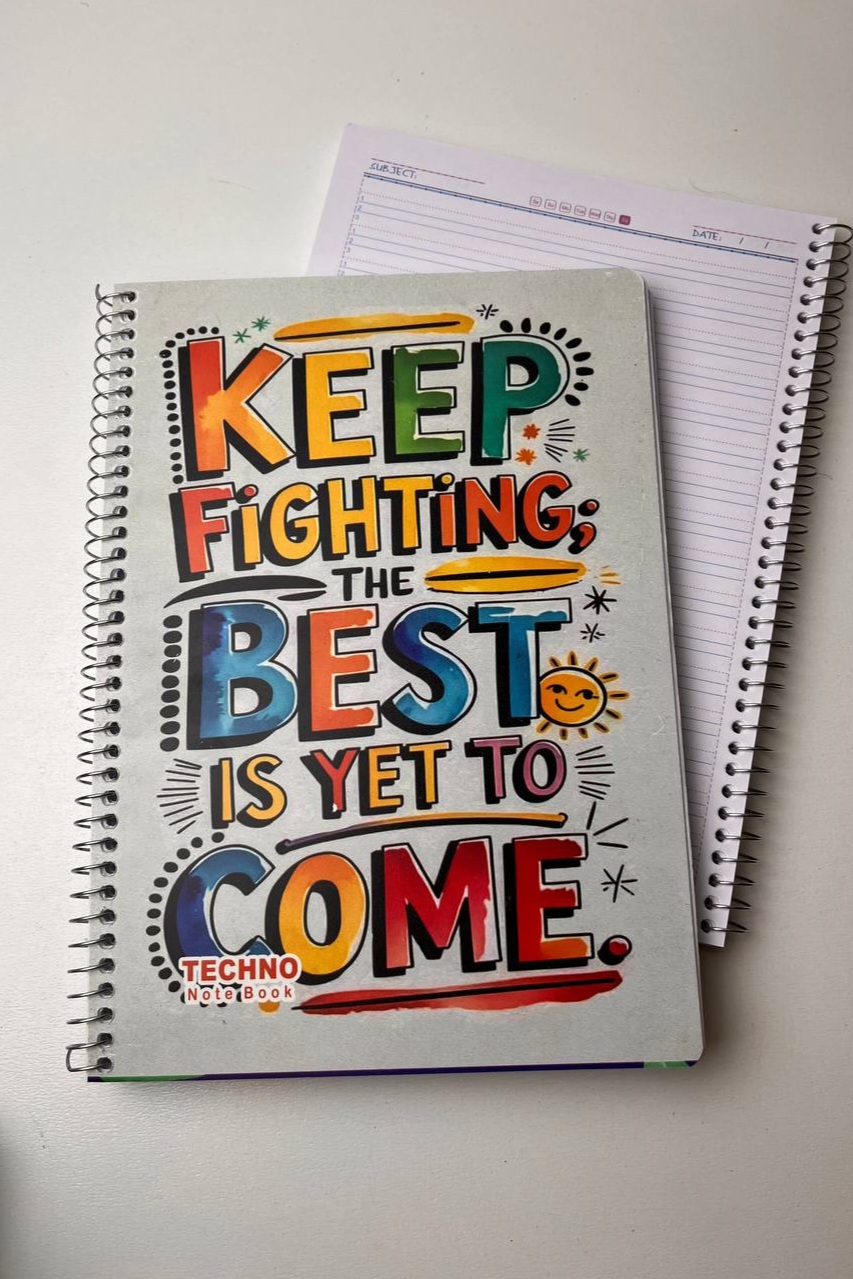 SUBJECT:
DATE: / /
KEEP
FiGHTiNG;
THE
BEST
IS YET TO
COME.
TECHNO
Note Book